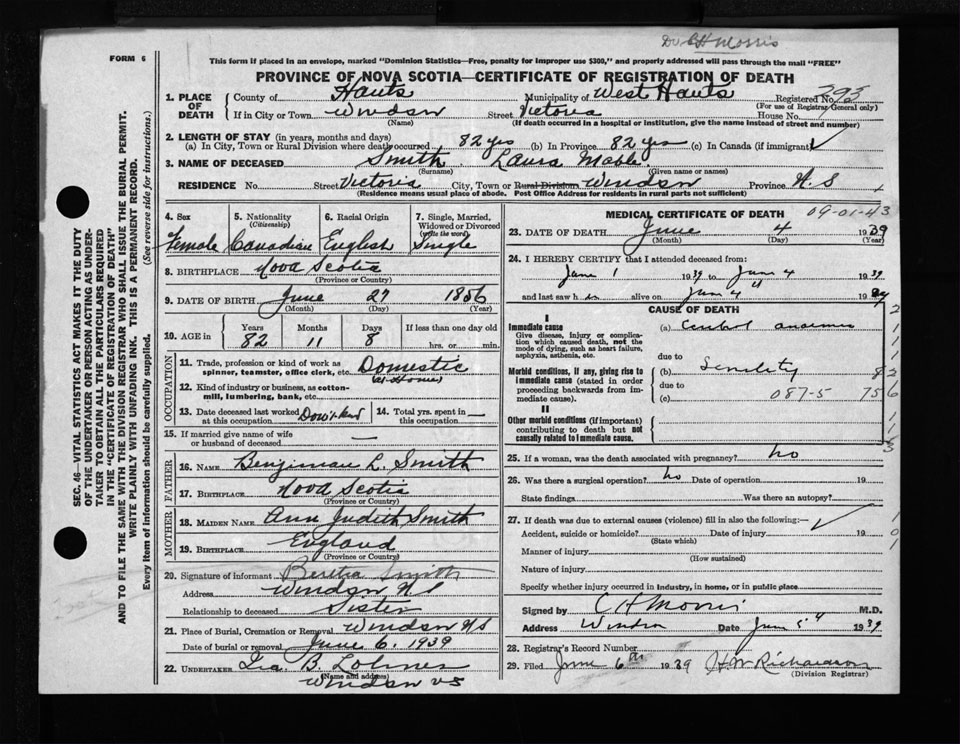 Dr CH Morris
FORM 6
This form if placed in an envelope, marked "Dominion Statistics—Free, penalty for improper use $300," and properly addressed will pass through the mail "FREE"
PROVINCE OF NOVA SCOTIA—CERTIFICATE OF REGISTRATION OF DEATH
1. PLACE OF DEATH County of Hants Municipality of West Hants Registered No. 393
(For use of Registrar General only)
If in City or Town Windsor Street Victoria House No.
(Name) (If death occurred in a hospital or institution, give the name instead of street and number)
2. LENGTH OF STAY (in years, months and days)
(a) In City, Town or Rural Division where death occurred 82 yrs (b) In Province 82 yrs (c) In Canada (if immigrant)
3. NAME OF DECEASED Smith Laura Mable
(Surname) (Given name or names)
RESIDENCE No. Street Victoria City, Town or Rural Division Windsor Province N.S
(Residence means usual place of abode. Post Office Address for residents in rural parts not sufficient)
4. Sex Female
5. Nationality (Citizenship) Canadian
6. Racial Origin English
7. Single, Married, Widowed or Divorced (write the word) Single
8. BIRTHPLACE Nova Scotia
(Province or Country)
9. DATE OF BIRTH June 27 1856
(Month) (Day) (Year)
10. AGE in Years Months Days If less than one day old
82 11 8 hrs. or min.
OCCUPATION
11. Trade, profession or kind of work as spinner, teamster, office clerk, etc. Domestic
(at Home)
12. Kind of industry or business, as cotton-mill, lumbering, bank, etc.
13. Date deceased last worked at this occupation
14. Total yrs. spent in this occupation —
15. If married give name of wife or husband of deceased —
FATHER
16. NAME Benjiman L. Smith
17. BIRTHPLACE Nova Scotia
(Province or Country)
MOTHER
18. MAIDEN NAME Ann Judith Smith
19. BIRTHPLACE England
(Province or Country)
20. Signature of informant Bertha Smith
Address Windsor NS
Relationship to deceased Sister
21. Place of Burial, Cremation or Removal Windsor N/S
Date of burial or removal June 6, 1939
22. UNDERTAKER Ira B. Lohnes
(Name and address)
Windsor NS
MEDICAL CERTIFICATE OF DEATH
09-01-43
23. DATE OF DEATH June 4 1939
(Month) (Day) (Year)
24. I HEREBY CERTIFY that I attended deceased from:
June 1 1939 to June 4 1939
and last saw h er alive on June 4" 1939
CAUSE OF DEATH
I
Immediate cause
Give disease, injury or complication which caused death, not the mode of dying, such as heart failure, asphyxia, asthenia, etc.
(a)
due to
Morbid conditions, if any, giving rise to immediate cause (stated in order proceeding backwards from immediate cause).
(b) Senility
due to
(c) 087-5 756
II
Other morbid conditions (if important) contributing to death but not causally related to immediate cause.
25. If a woman, was the death associated with pregnancy? no
26. Was there a surgical operation? no Date of operation 19
State findings Was there an autopsy?
27. If death was due to external causes (violence) fill in also the following:—
Accident, suicide or homicide? Date of injury 19
(State which)
Manner of injury
(How sustained)
Nature of injury
Specify whether injury occurred in industry, in home, or in public place
Signed by CH Morris M.D.
Address Windsor Date June 5" 1939
28. Registrar's Record Number
29. Filed June 6th 1939 H W Richardson
(Division Registrar)
SEC. 46—VITAL STATISTICS ACT MAKES IT THE DUTY
OF THE UNDERTAKER OR PERSON ACTING AS UNDER-
TAKER TO OBTAIN ALL THE PARTICULARS REQUIRED
IN THE "CERTIFICATE OF REGISTRATION OF DEATH"
AND TO FILE THE SAME WITH THE DIVISION REGISTRAR WHO SHALL ISSUE THE BURIAL PERMIT.
WRITE PLAINLY WITH UNFADING INK. THIS IS A PERMANENT RECORD.
Every item of Information should be carefully supplied. (See reverse side for instructions.)